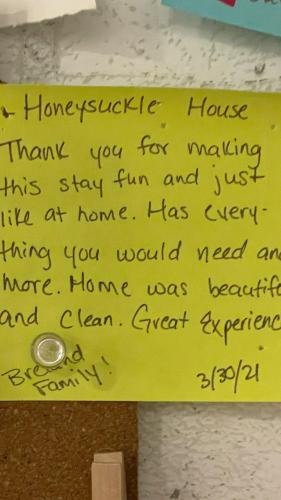 - Honeysuckle House
Thank you for making
this stay fun and just
like at home. Has every-
thing you would need an
more. Home was beautif
and clean. Great Experienc
Family!
3/30/21